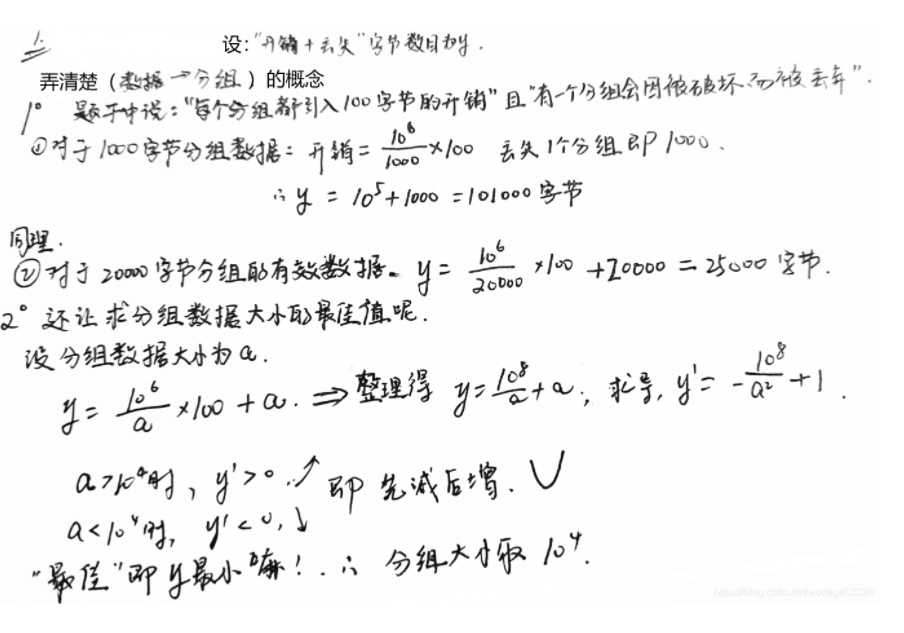 1.
设:"开销+丢失"字节数目为y.
弄清楚(数据→分组)的概念
1° 题干中说:"每个分组都引入100字节的开销"且"有一个分组会因被破坏而被丢弃".
①对于1000字节分组数据: 开销= 10⁶/1000 ×100 丢失1个分组即1000.
∴ y = 10⁵+1000 =101000字节
同理.
②对于20000字节分组的有效数据. y= 10⁶/20000 ×100 +20000 = 25000 字节.
2° 还让求分组数据大小的最佳值呢.
设分组数据大小为a.
y= 10⁶/a ×100 + a. ⇒ 整理得 y= 10⁸/a +a; 求导, y'= - 10⁸/a² +1.
a>10⁴时, y'>0.↗ 即 先减后增. ∪
a<10⁴时, y'<0,↓
"最佳"即y最小嘛!. ∴ 分组大小取 10⁴.
https://blog.csdn.net/wodegeCSDN